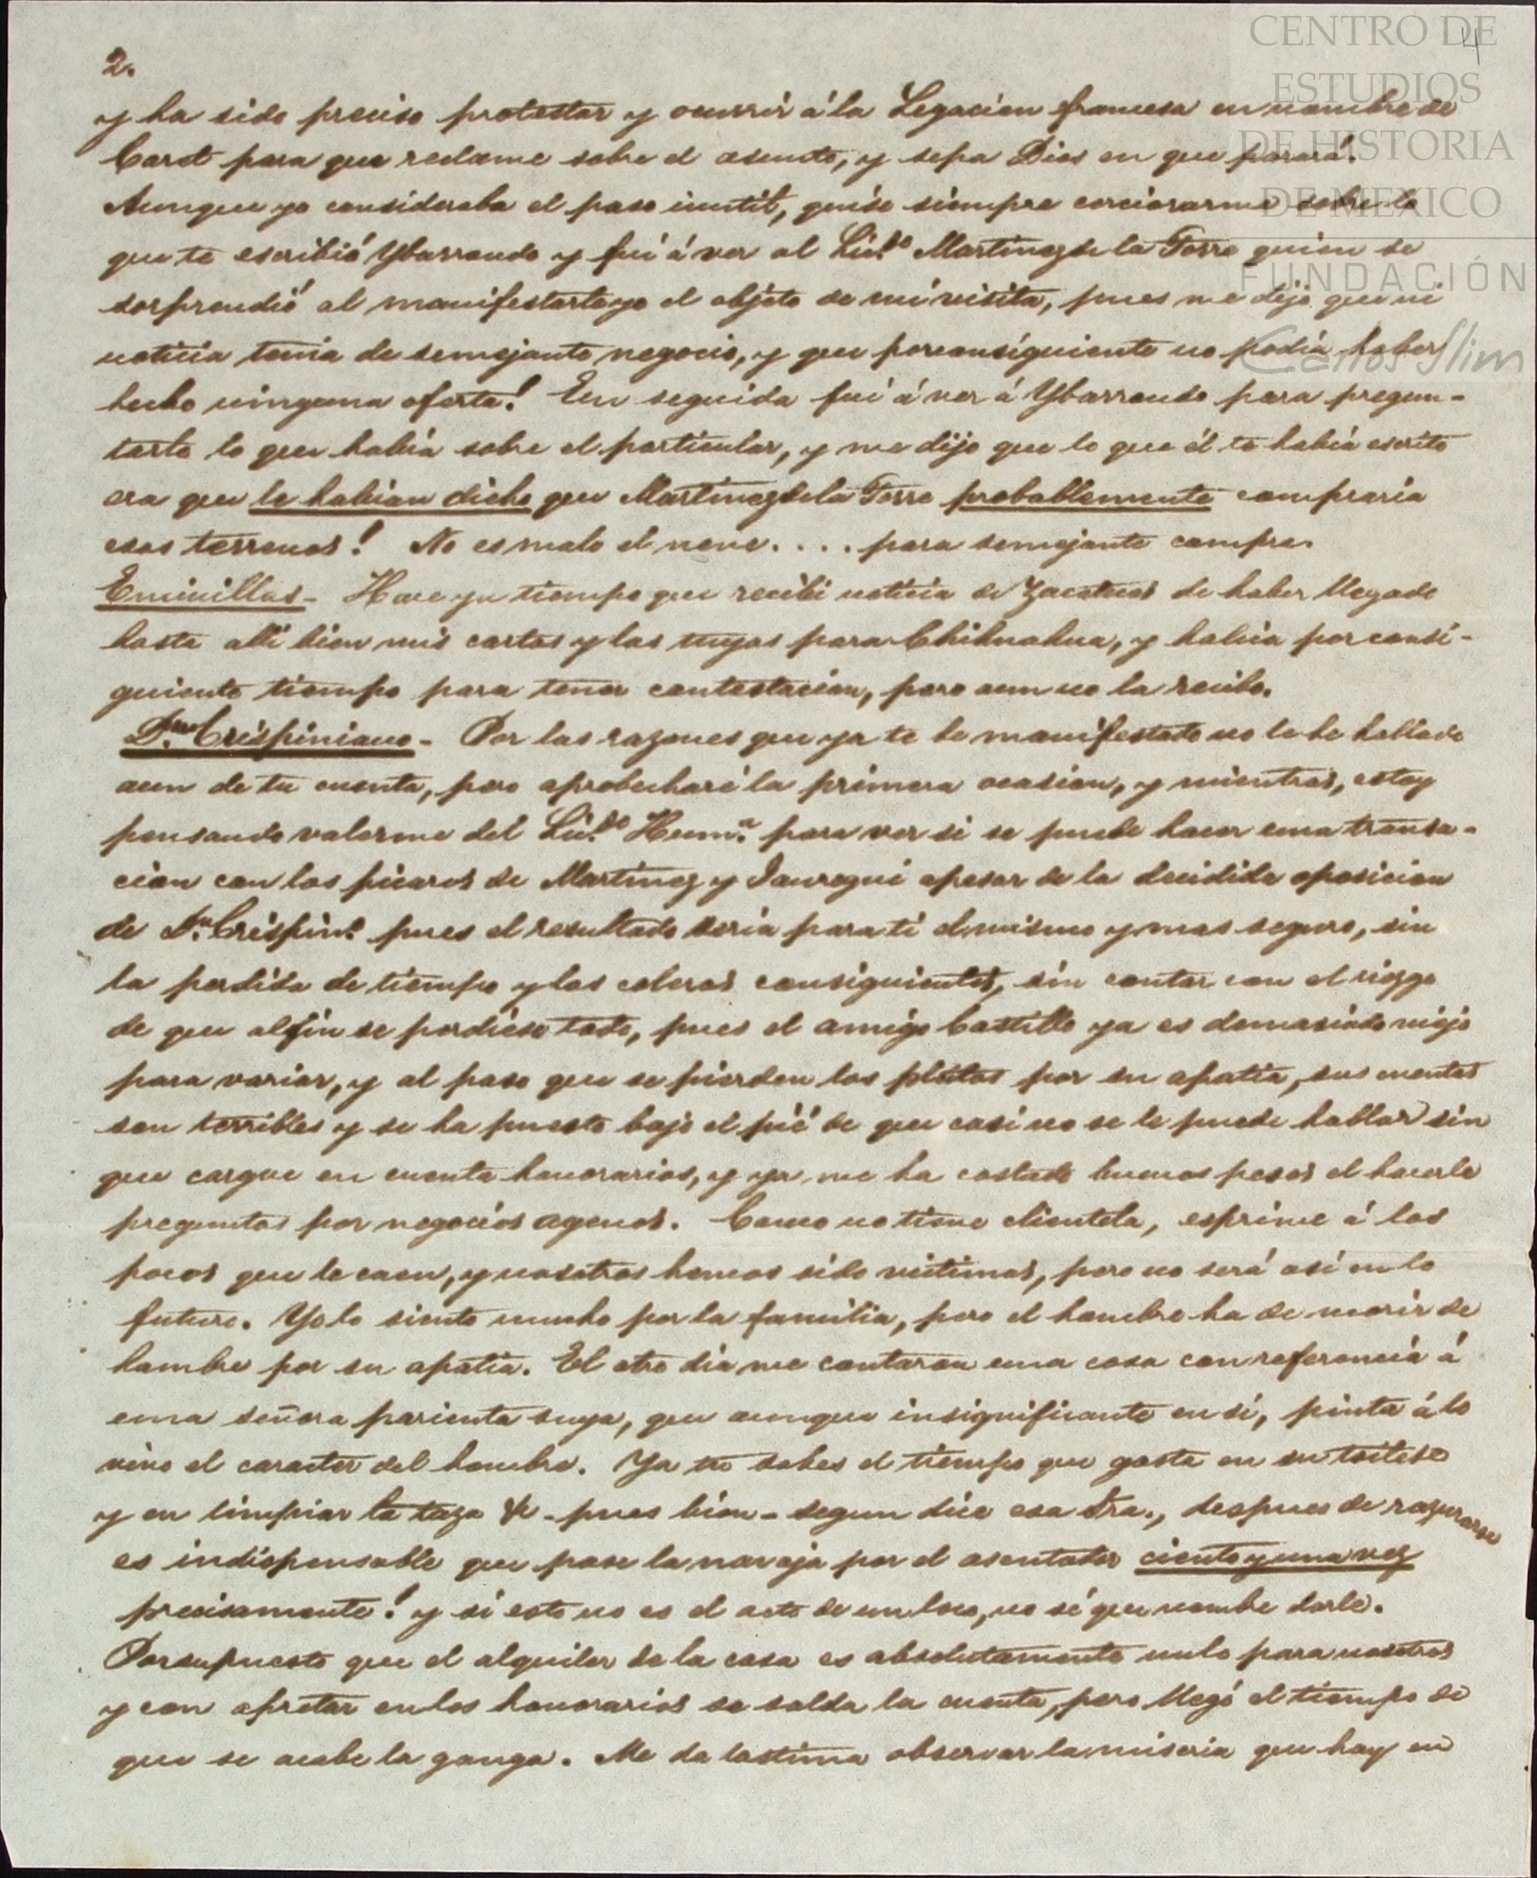 CENTRO DE
ESTUDIOS
DE HISTORIA
DE MEXICO
FUNDACIÓN
Carlos Slim
4
2.
y ha sido preciso protestar y ocurrir á la Legacion francesa en nombre de
Carot para que reclame sobre el asunto, y sepa Dios en que parará.
Aunque yo consideraba el paso inutil, quise siempre cerciorarme sobre lo
que te escribió Ybarrondo y fuí á ver al Licdo Martinez de la Torre quien se
sorprendió al manifestarle yo el objeto de mi visita, pues me dijo que ni
noticia tenia de semejante negocio, y que por consiguiente no podia haber
hecho ninguna oferta! En seguida fuí á ver á Ybarrondo para pregun-
tarle lo que habia sobre el particular, y me dijo que lo que él te habia escrito
era que le habian dicho que Martinez de la Torre probablemente compraria
esos terrenos! No es malo el nene.... para semejante compra.
Encinillas - Hace ya tiempo que recibi noticia de Zacatecas de haber llegado
hasta allí bien mis cartas y las tuyas para Chihuahua, y habia por consi-
guiente tiempo para tener contestacion, pero aun no la recibo.
Dn Crispiniano - Por las razones que ya te he manifestado no le he hablado
aun de tu cuenta, pero aprobecharé la primera ocasion, y mientras, estoy
pensando valerme del Licdo Hum.a para ver si se puede hacer una transa-
cion con los picaros de Martinez y Jauregui apesar de la decidida oposicion
de Dn Crispino pues el resultado seria para ti el mismo y mas seguro, sin
la perdida de tiempo y las coleras consiguientes, sin contar con el riezgo
de que al fin se perdiese todo, pues el amigo Castillo ya es demasiado viejo
para variar, y al paso que se pierden los pleitos por su apatia, sus cuentas
son terribles y se ha puesto bajo el pié de que casi no se le puede hablar sin
que cargue en cuenta honorarios, y ya me ha costado buenos pesos el hacerle
preguntas por negocios agenos. Como no tiene clientela, esprime á los
pocos que le caen, y nosotros hemos sido victimas, pero no será así en lo
futuro. Yo lo siento mucho por la familia, pero el hombre ha de morir de
hambre por su apatia. El otro dia me contaron una cosa con referencia á
una señora parienta suya, que aunque insignificante en sí, pinta á lo
vivo el caracter del hombre. Ya tu sabes el tiempo que gasta en su toilete
y en limpiar la taza &c - pues bien - segun dice esa Sra., despues de razurarse
es indispensable que pase la navaja por el asentador ciento y una vez
precisamente! y si esto no es el acto de un loco, no sé que nombre darle.
Por supuesto que el alquiler de la casa es absolutamente nulo para nosotros
y con apretar en los honorarios se salda la cuenta, pero llegó el tiempo de
que se acabe la ganga. Me da lastima observar la miseria que hay en